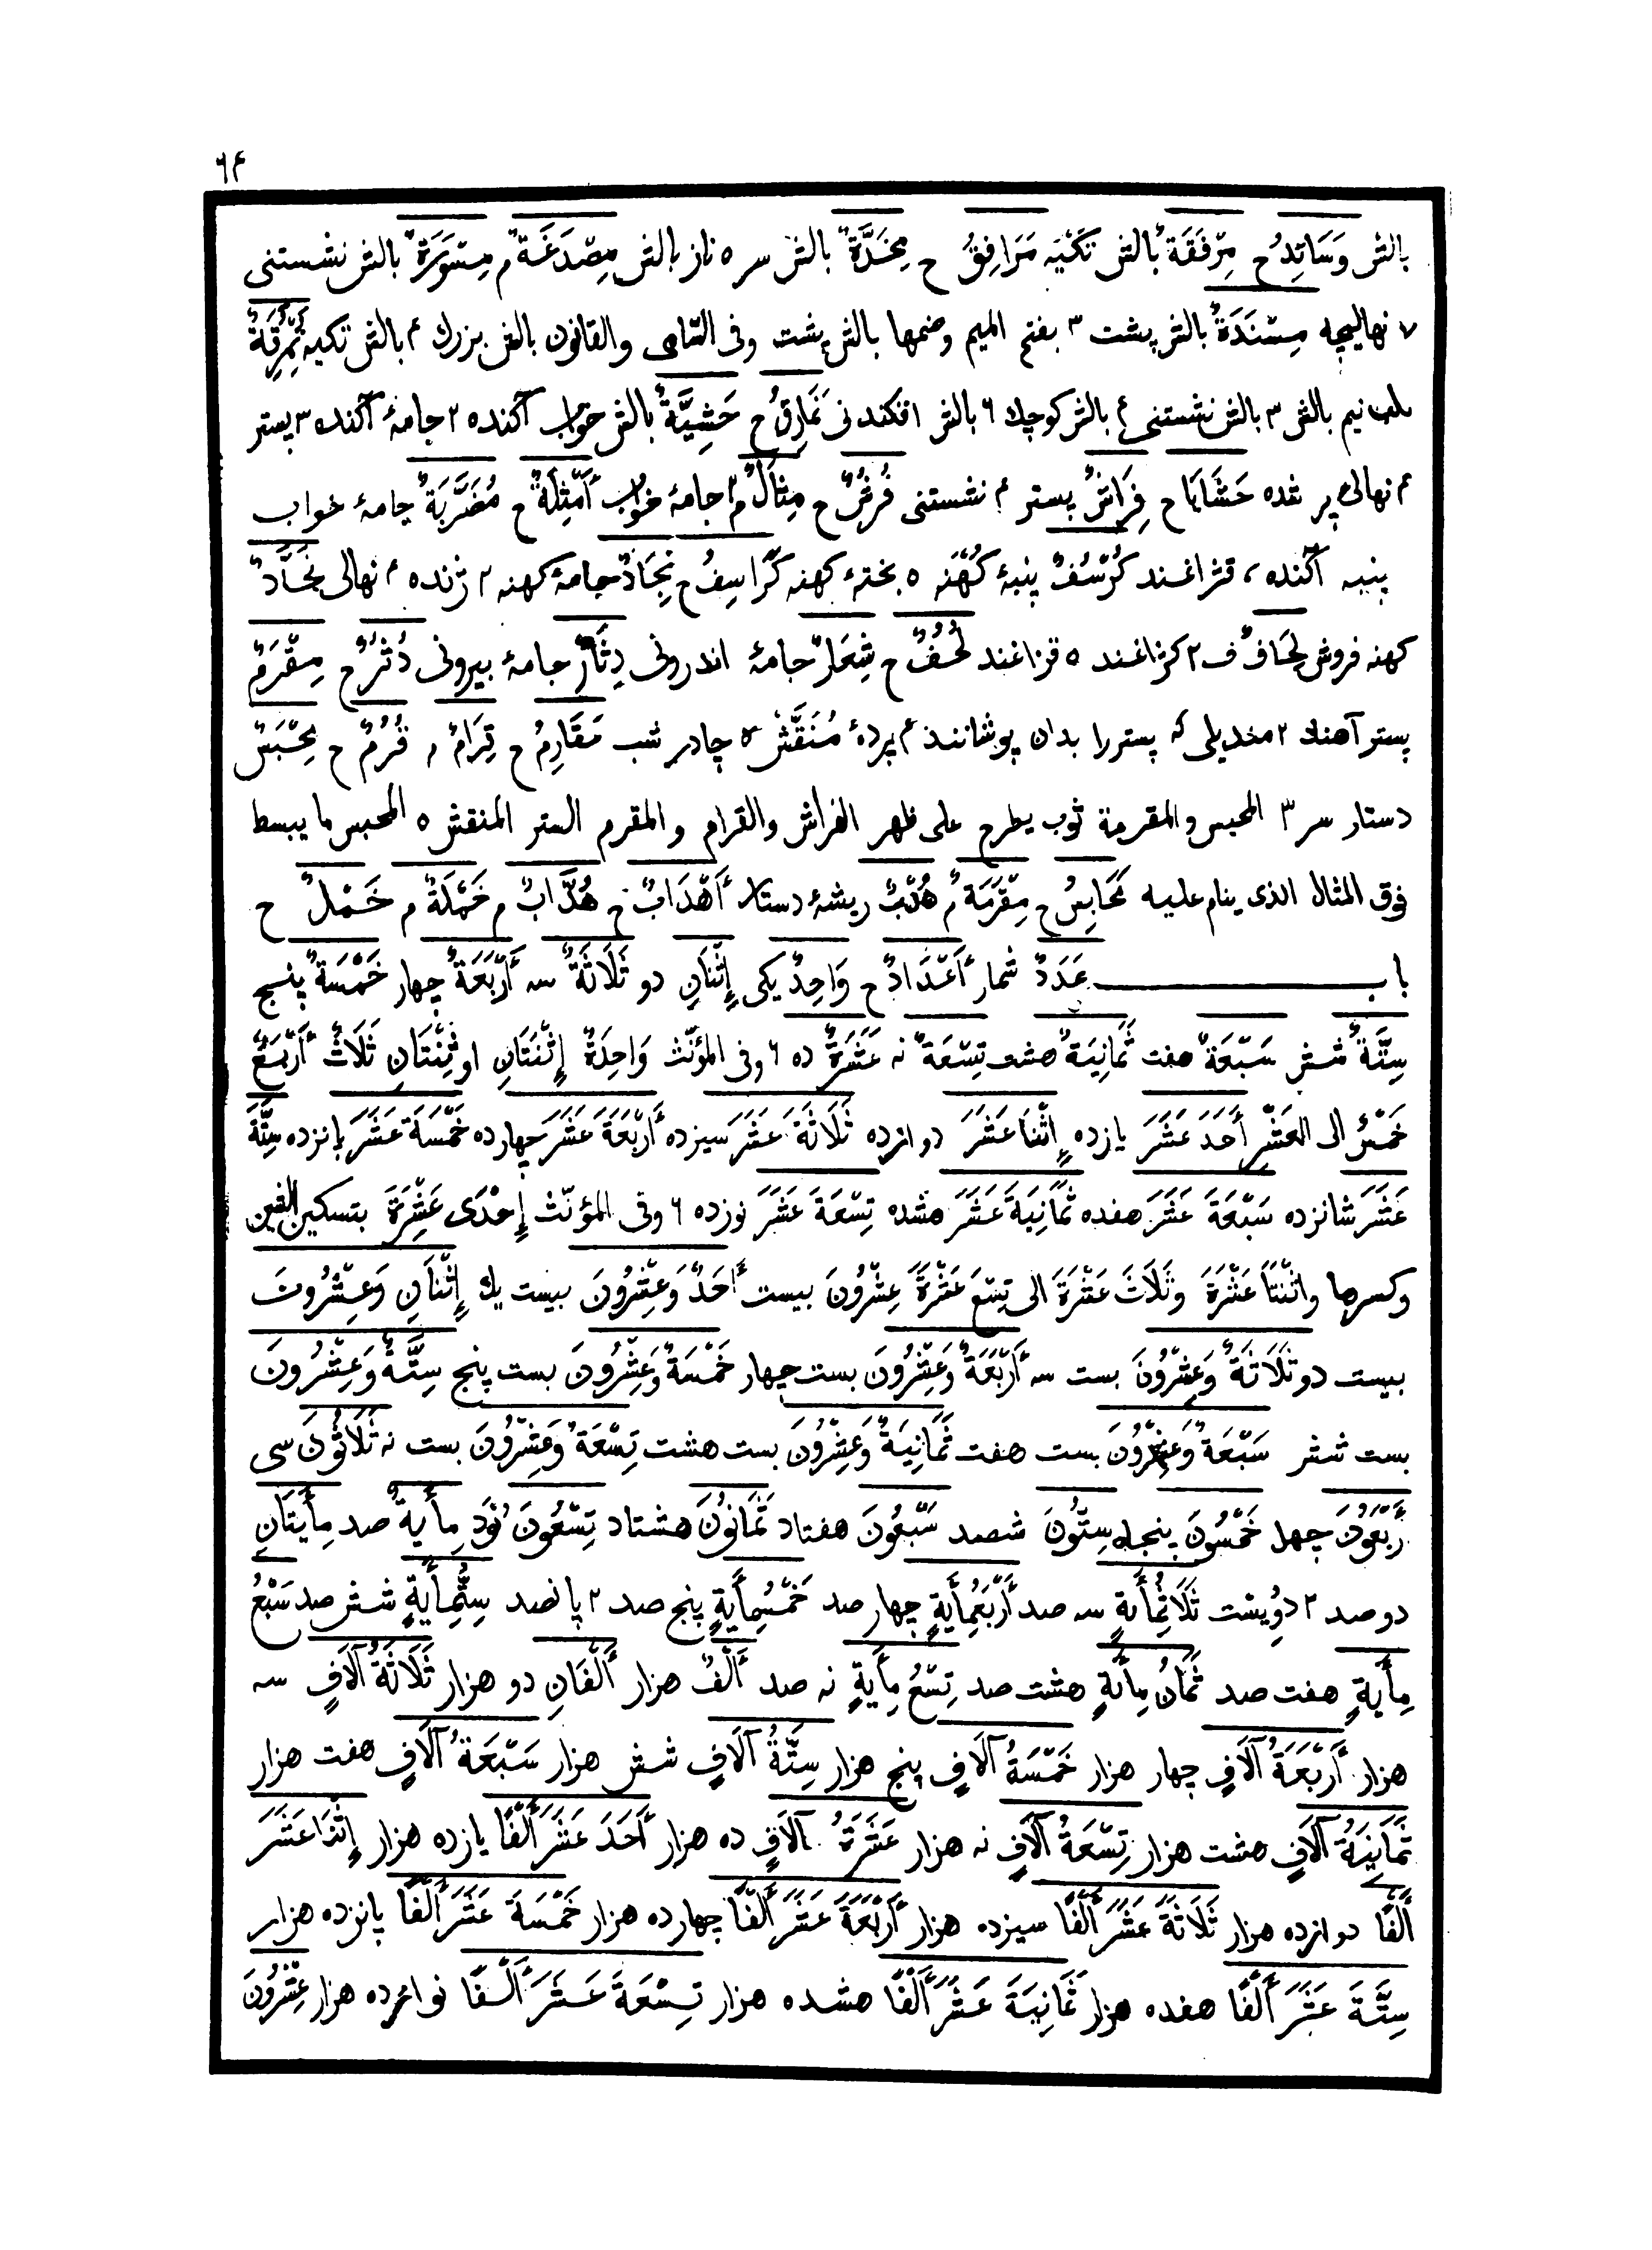 ٦٤
بالش وَسَائِدُ ح مِرْفَقَةٌ بالش تَكْيَه مَرَافِقُ ح مِخَدَّةٌ بالش سر ٥ ناز بالش مِصْدَغَةٌ م مِسْوَرَةٌ بالش نشستنى
٧ نهاليچه مِسْنَدَةٌ بالش پشت ٣ بفتح الميم وضمها بالش پشت وفى السّامى والقانون بالش بزرك ٤ بالش تكيه نُمْرُقَةٌ
نيم بالش ٣ بالش نشستنى ٤ بالش كوچك ٦ بالش افكندنى نَمَارِقُ ح حَشِيَّةٌ بالش خواب آكنده ٢ جامهٔ آكنده ٣ بستر
٤ نهالئ پر شده حَشَايَا ح فِرَاشٌ بستر ٤ نشستنى فُرُشٌ ح مِثَالٌ م ٣ جامهٔ خواب أَمْثِلَةٌ ح مُضَرَّبَةٌ جامهٔ خواب
پنبه آكنده ، قزاغند كُرْسُفٌ پنبهٔ كُهْنَه ٥ بختهٔ كهنه كَرَاسِفُ ح نِجَادٌ جامهٔ كهنه ٢ ژنده ٤ نهالى نَجَّادٌ
كهنه فروش لِحَافٌ ف ٢ كژاغند ٥ قزاغند لُحُفٌ ح شِعَارٌ جامهٔ اندرونى دِثَارٌ جامهٔ بيرونى دُثُرٌ ح مِقْرَمٌ
بستر آهنك ٢ منديلى كه بستر را بدان پوشانند ٤ پردهٔ مُنَقَّش ٥ چادر شب مَقَارِمُ ح قِرَامٌ م قُرُمٌ ح مِحْبَسٌ
دستار سر ٣ المحبس والمقرمة ثوب يطرح على ظهر الفراش والقرام والمقرم الستر المنقش ٥ المحبس ما يبسط
فوق المثال الذى ينام عليه مَحَابِسُ ح مِقْرَمَةٌ م هُدْبٌ ريشهٔ دستار أَهْدَابٌ ح هُدَّابٌ م خَمْلَةٌ م خَمْلٌ ح
باب عَدَدٌ شمار أَعْدَادٌ ح وَاحِدٌ يكى إِثْنَانِ دو ثَلَاثَةٌ سه أَرْبَعَةٌ چهار خَمْسَةٌ پنج
سِتَّةٌ شش سَبْعَةٌ هفت ثَمَانِيَةٌ هشت تِسْعَةٌ نه عَشَرَةٌ ده ٦ وفى المؤنّث وَاحِدَةٌ إِثْنَتَانِ او ثِنْتَانِ ثَلَاثٌ أَرْبَعٌ
خَمْسٌ الى العَشْرِ أَحَدَ عَشَرَ يازده إِثْنَا عَشَرَ دوازده ثَلَاثَةَ عَشَرَ سيزده أَرْبَعَةَ عَشَرَ چهارده خَمْسَةَ عَشَرَ پانزده سِتَّةَ
عَشَرَ شانزده سَبْعَةَ عَشَرَ هفده ثَمَانِيَةَ عَشَرَ هشده تِسْعَةَ عَشَرَ نوزده ٦ وفى المؤنّث إِحْدَى عَشْرَةَ بتسكين الشين
وكسرها واثْنَتَا عَشْرَةَ وثَلَاثَ عَشْرَةَ الى تِسْعَ عَشْرَةَ عِشْرُونَ بيست أَحَدٌ وَعِشْرُونَ بيست يك إِثْنَانِ وَعِشْرُونَ
بيست دو ثَلَاثَةٌ وَعِشْرُونَ بست سه أَرْبَعَةٌ وَعِشْرُونَ بست چهار خَمْسَةٌ وَعِشْرُونَ بست پنج سِتَّةٌ وَعِشْرُونَ
بست شش سَبْعَةٌ وَعِشْرُونَ بست هفت ثَمَانِيَةٌ وَعِشْرُونَ بست هشت تِسْعَةٌ وَعِشْرُونَ بست نه ثَلَاثُونَ سى
أَرْبَعُونَ چهل خَمْسُونَ پنجاه سِتُّونَ شصد سَبْعُونَ هفتاد ثَمَانُونَ هشتاد تِسْعُونَ نَوَد مِأَيةٌ صد مِأَيتَانِ
دو صد ٢ دِوِيست ثَلَاثُمِأَيةٍ سه صد أَرْبَعُمِأَيةٍ چهار صد خَمْسُمِأَيةٍ پنج صد ٢ پانصد سِتُّمِأَيةٍ شش صد سَبْعُ
مِأَيةٍ هفت صد ثَمَانُ مِأَيةٍ هشت صد تِسْعُ مِأَيةٍ نه صد أَلْفٌ هزار أَلْفَانِ دو هزار ثَلَاثَةُ آلَافٍ سه
هزار أَرْبَعَةُ آلَافٍ چهار هزار خَمْسَةُ آلَافٍ پنج هزار سِتَّةُ آلَافٍ شش هزار سَبْعَةُ آلَافٍ هفت هزار
ثَمَانِيَةُ آلَافٍ هشت هزار تِسْعَةُ آلَافٍ نه هزار عَشَرَةُ آلَافٍ ده هزار أَحَدَ عَشَرَ أَلْفًا يازده هزار إِثْنَا عَشَرَ
أَلْفًا دوازده هزار ثَلَاثَةَ عَشَرَ أَلْفًا سيزده هزار أَرْبَعَةَ عَشَرَ أَلْفًا چهارده هزار خَمْسَةَ عَشَرَ أَلْفًا پانزده هزار
سِتَّةَ عَشَرَ أَلْفًا هفده هزار ثَمَانِيَةَ عَشَرَ أَلْفًا هشده هزار تِسْعَةَ عَشَرَ أَلْفًا هزار عِشْرُونَ